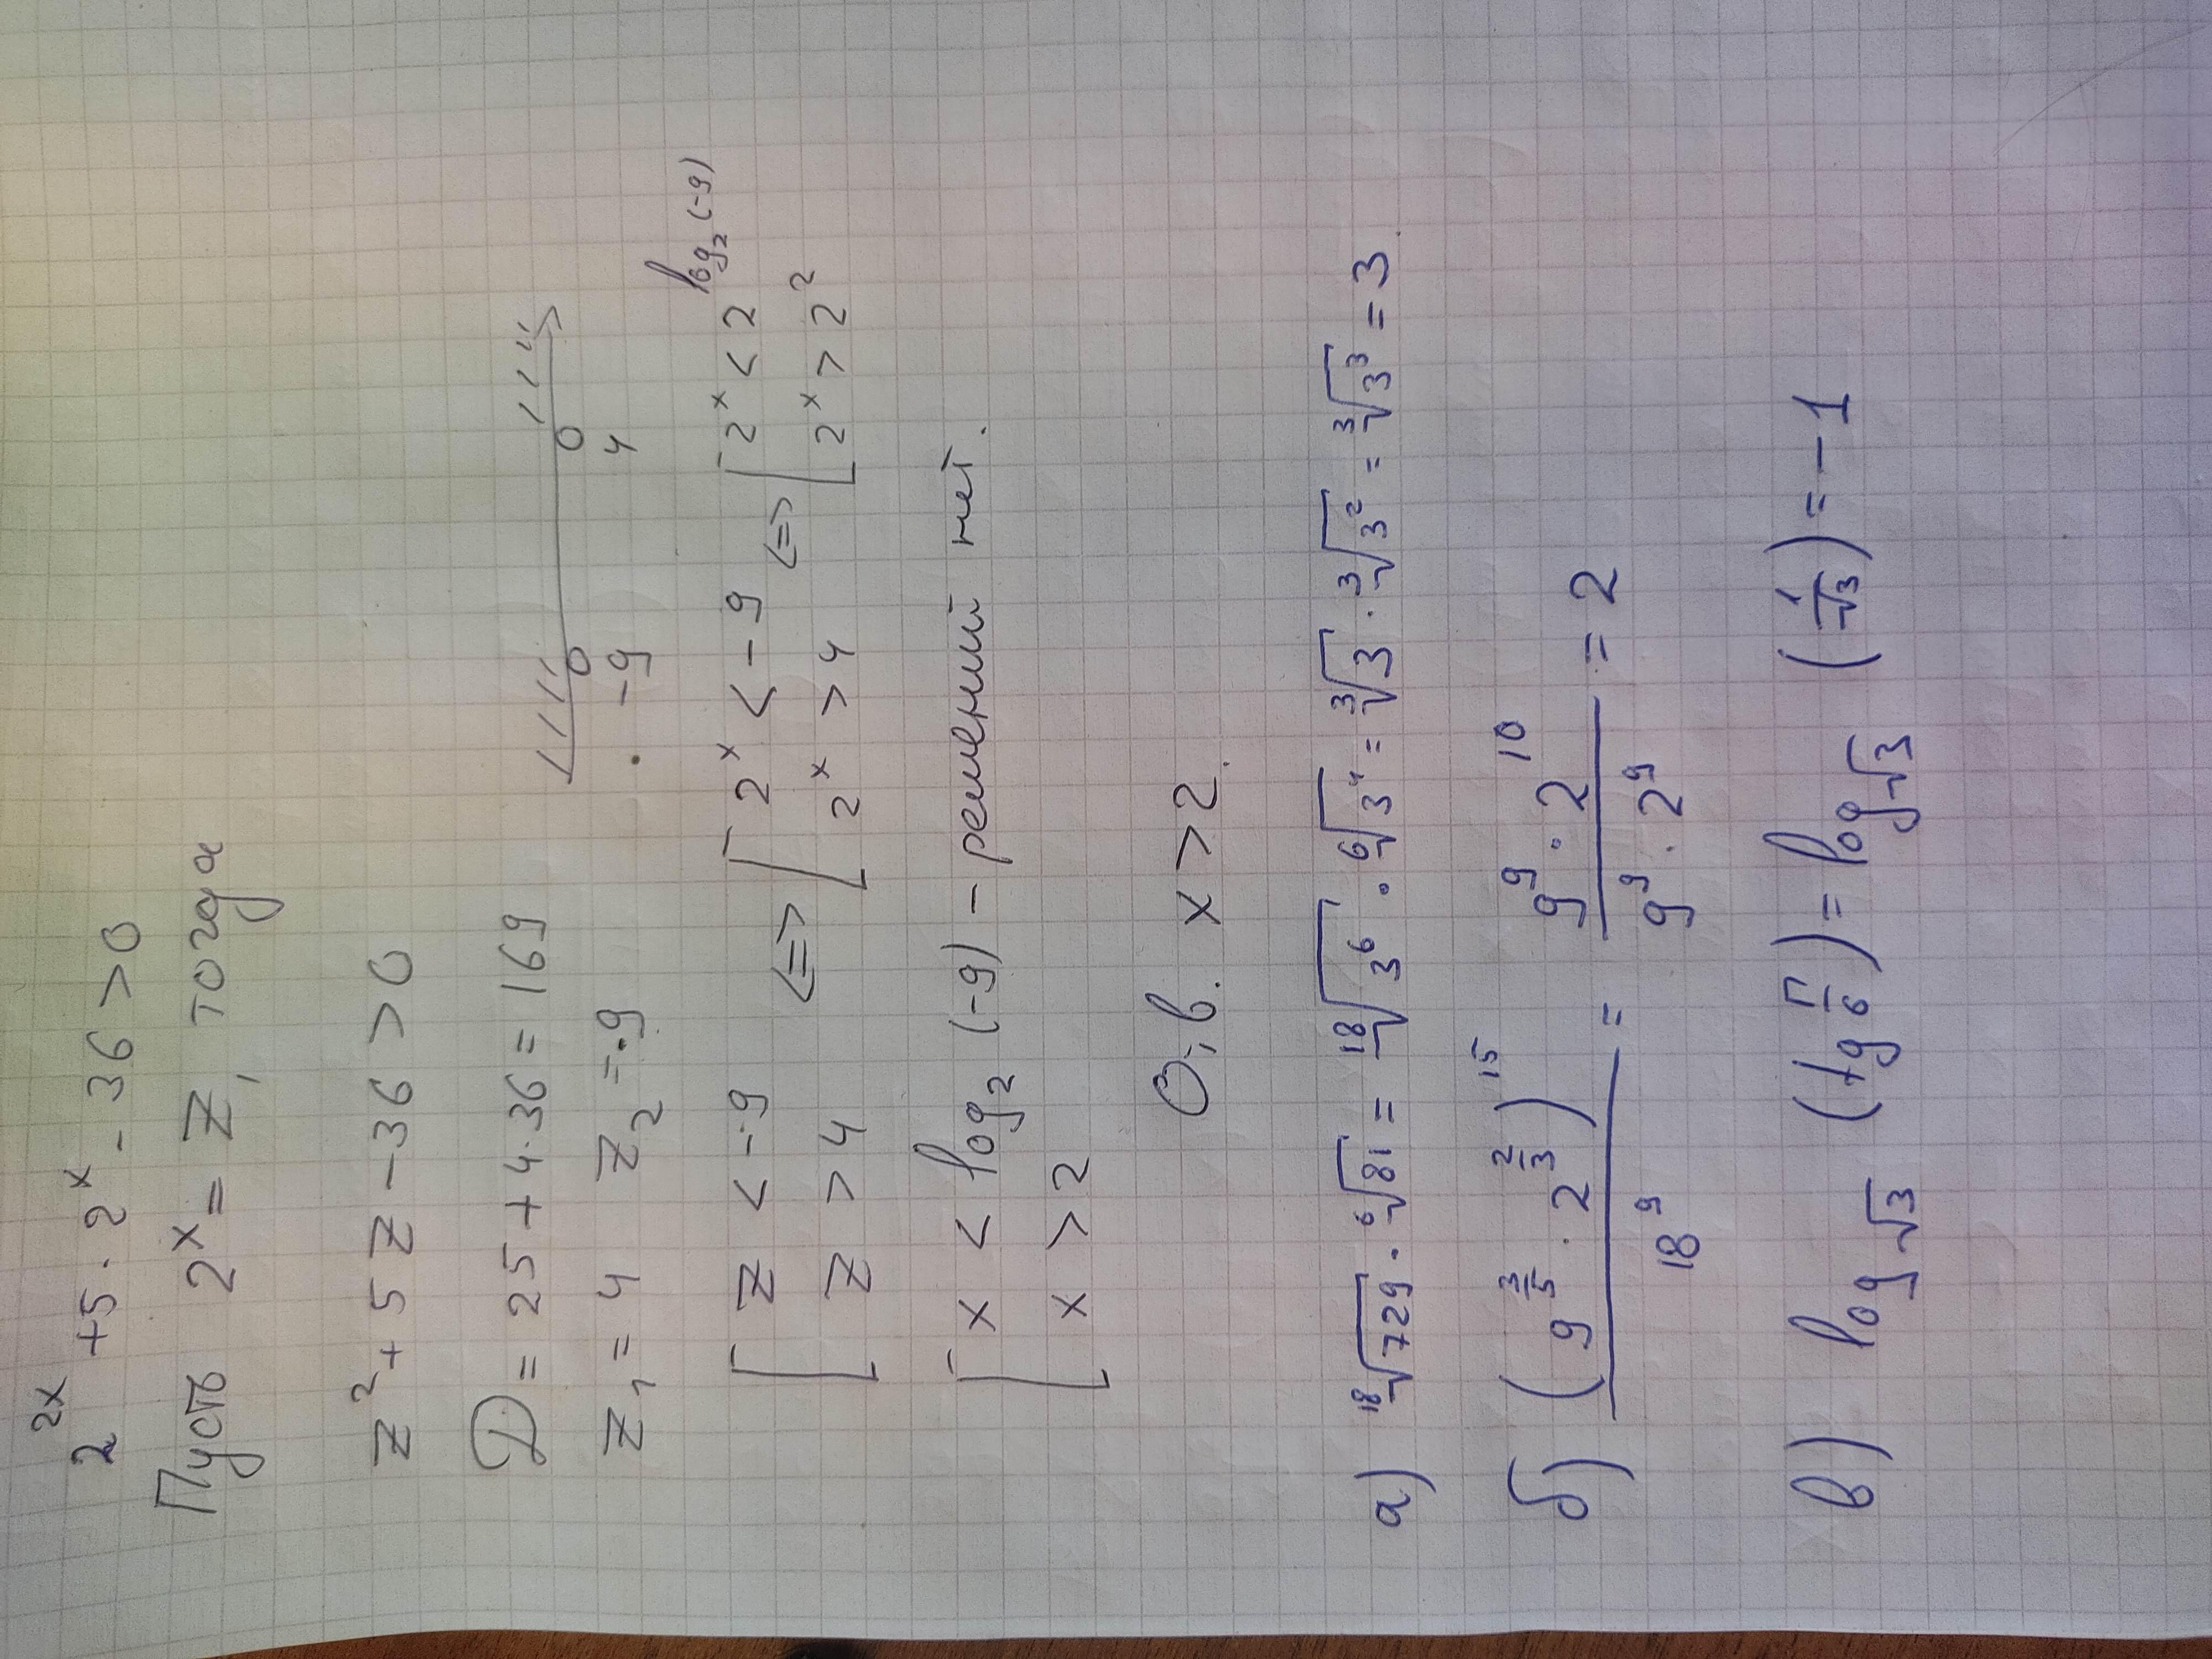 2^{2x} + 5 · 2^x - 36 > 0
Пусть 2^x = z, тогда
z^2 + 5z - 36 > 0
D = 25 + 4·36 = 169
z_1 = 4 z_2 = -9
-9 4
[ z < -9 <=> [ 2^x < -9 <=> [ 2^x < 2^{log_2 (-9)}
[ z > 4 [ 2^x > 4 [ 2^x > 2^2
[ x < log_2 (-9) - решений нет.
[ x > 2
О-в. x > 2.
а) \sqrt[18]{729} · \sqrt[6]{81} = \sqrt[18]{3^6} · \sqrt[6]{3^4} = \sqrt[3]{3} · \sqrt[3]{3^2} = \sqrt[3]{3^3} = 3.
б) (9^{3/5} · 2^{2/3})^{15} / 18^9 = 9^9 · 2^{10} / 9^9 · 2^9 = 2
в) log_{√3} (tg π/6) = log_{√3} (1/√3) = -1